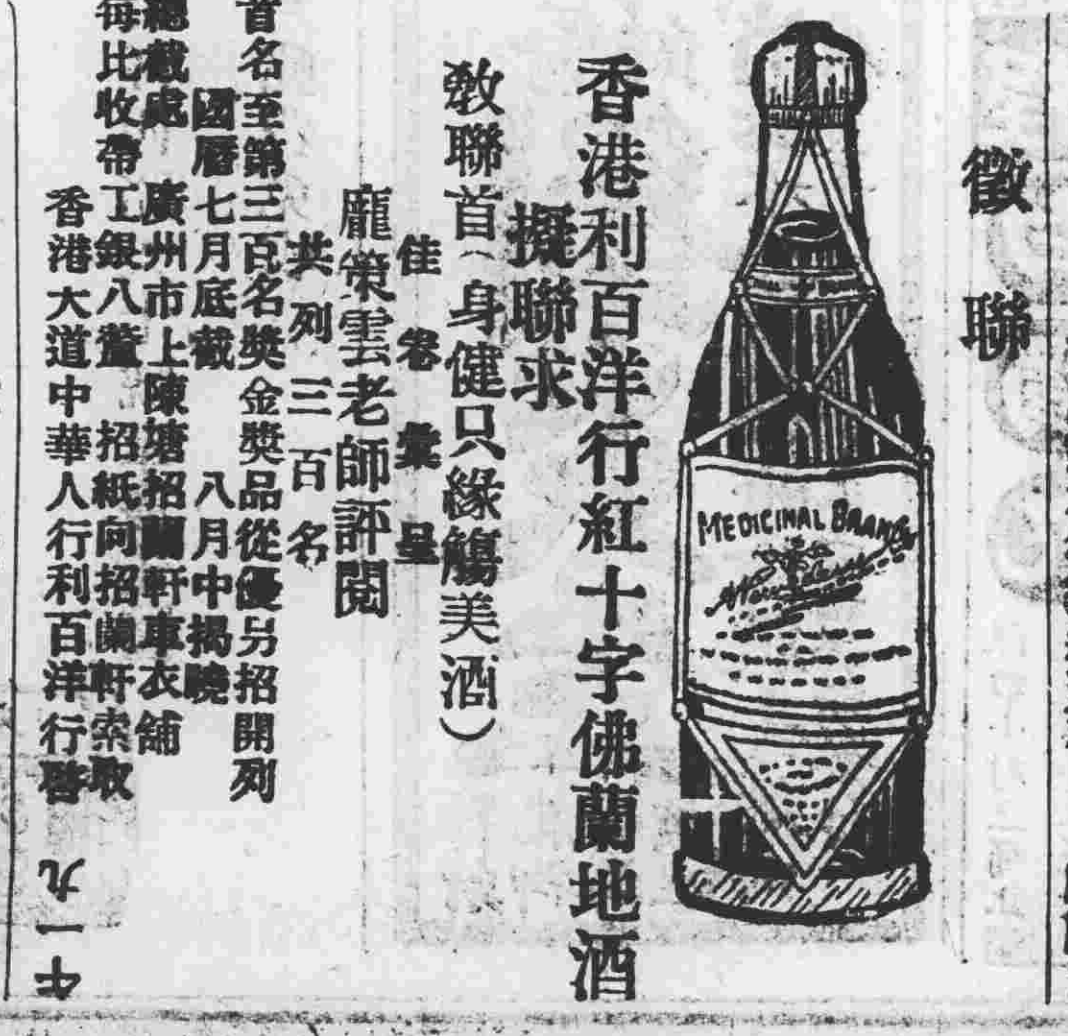 徵聯
MEDICINAL BRANDY
香港利百洋行紅十字佛蘭地酒
擬聯求
教聯首（身健只緣觴美酒）
佳卷彙呈
龐策雲老師評閱
共列三百名
首名至第三百名獎金獎品從優另招開列
國曆七月底截 八月中揭曉
總截處 廣州市上陳塘招蘭軒車衣舖
每比收帶工銀八萱 招紙向招蘭軒索取
香港大道中華人行利百洋行啓
九一午